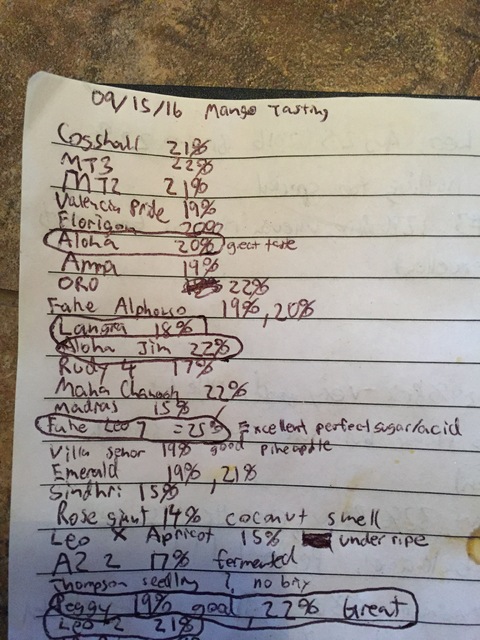 09/15/16 Mango Tasting
Cosshall 21%
MT3 22%
MT2 21%
Valencia Pride 19%
Florigon 20%
Aloha 20% great taste
Anna 19%
ORO 22%
Fahe Alphonso 19%, 20%
Langra 18%
Aloha Jim 22%
Rudy 4 17%
Maha Chanook 22%
Madras 15%
Fahe Leo 7 = 25% Excellent perfect sugar/acid
Villa senor 19% good pineapple
Emerald 19%, 21%
Sindhri 15%
Rose giant 14% coconut smell
Leo X Apricot 15% under ripe
AZ 2 17% fermented
Thompson seedling ?, no brix
Peggy 19% good, 22% Great
Leo 2 21%